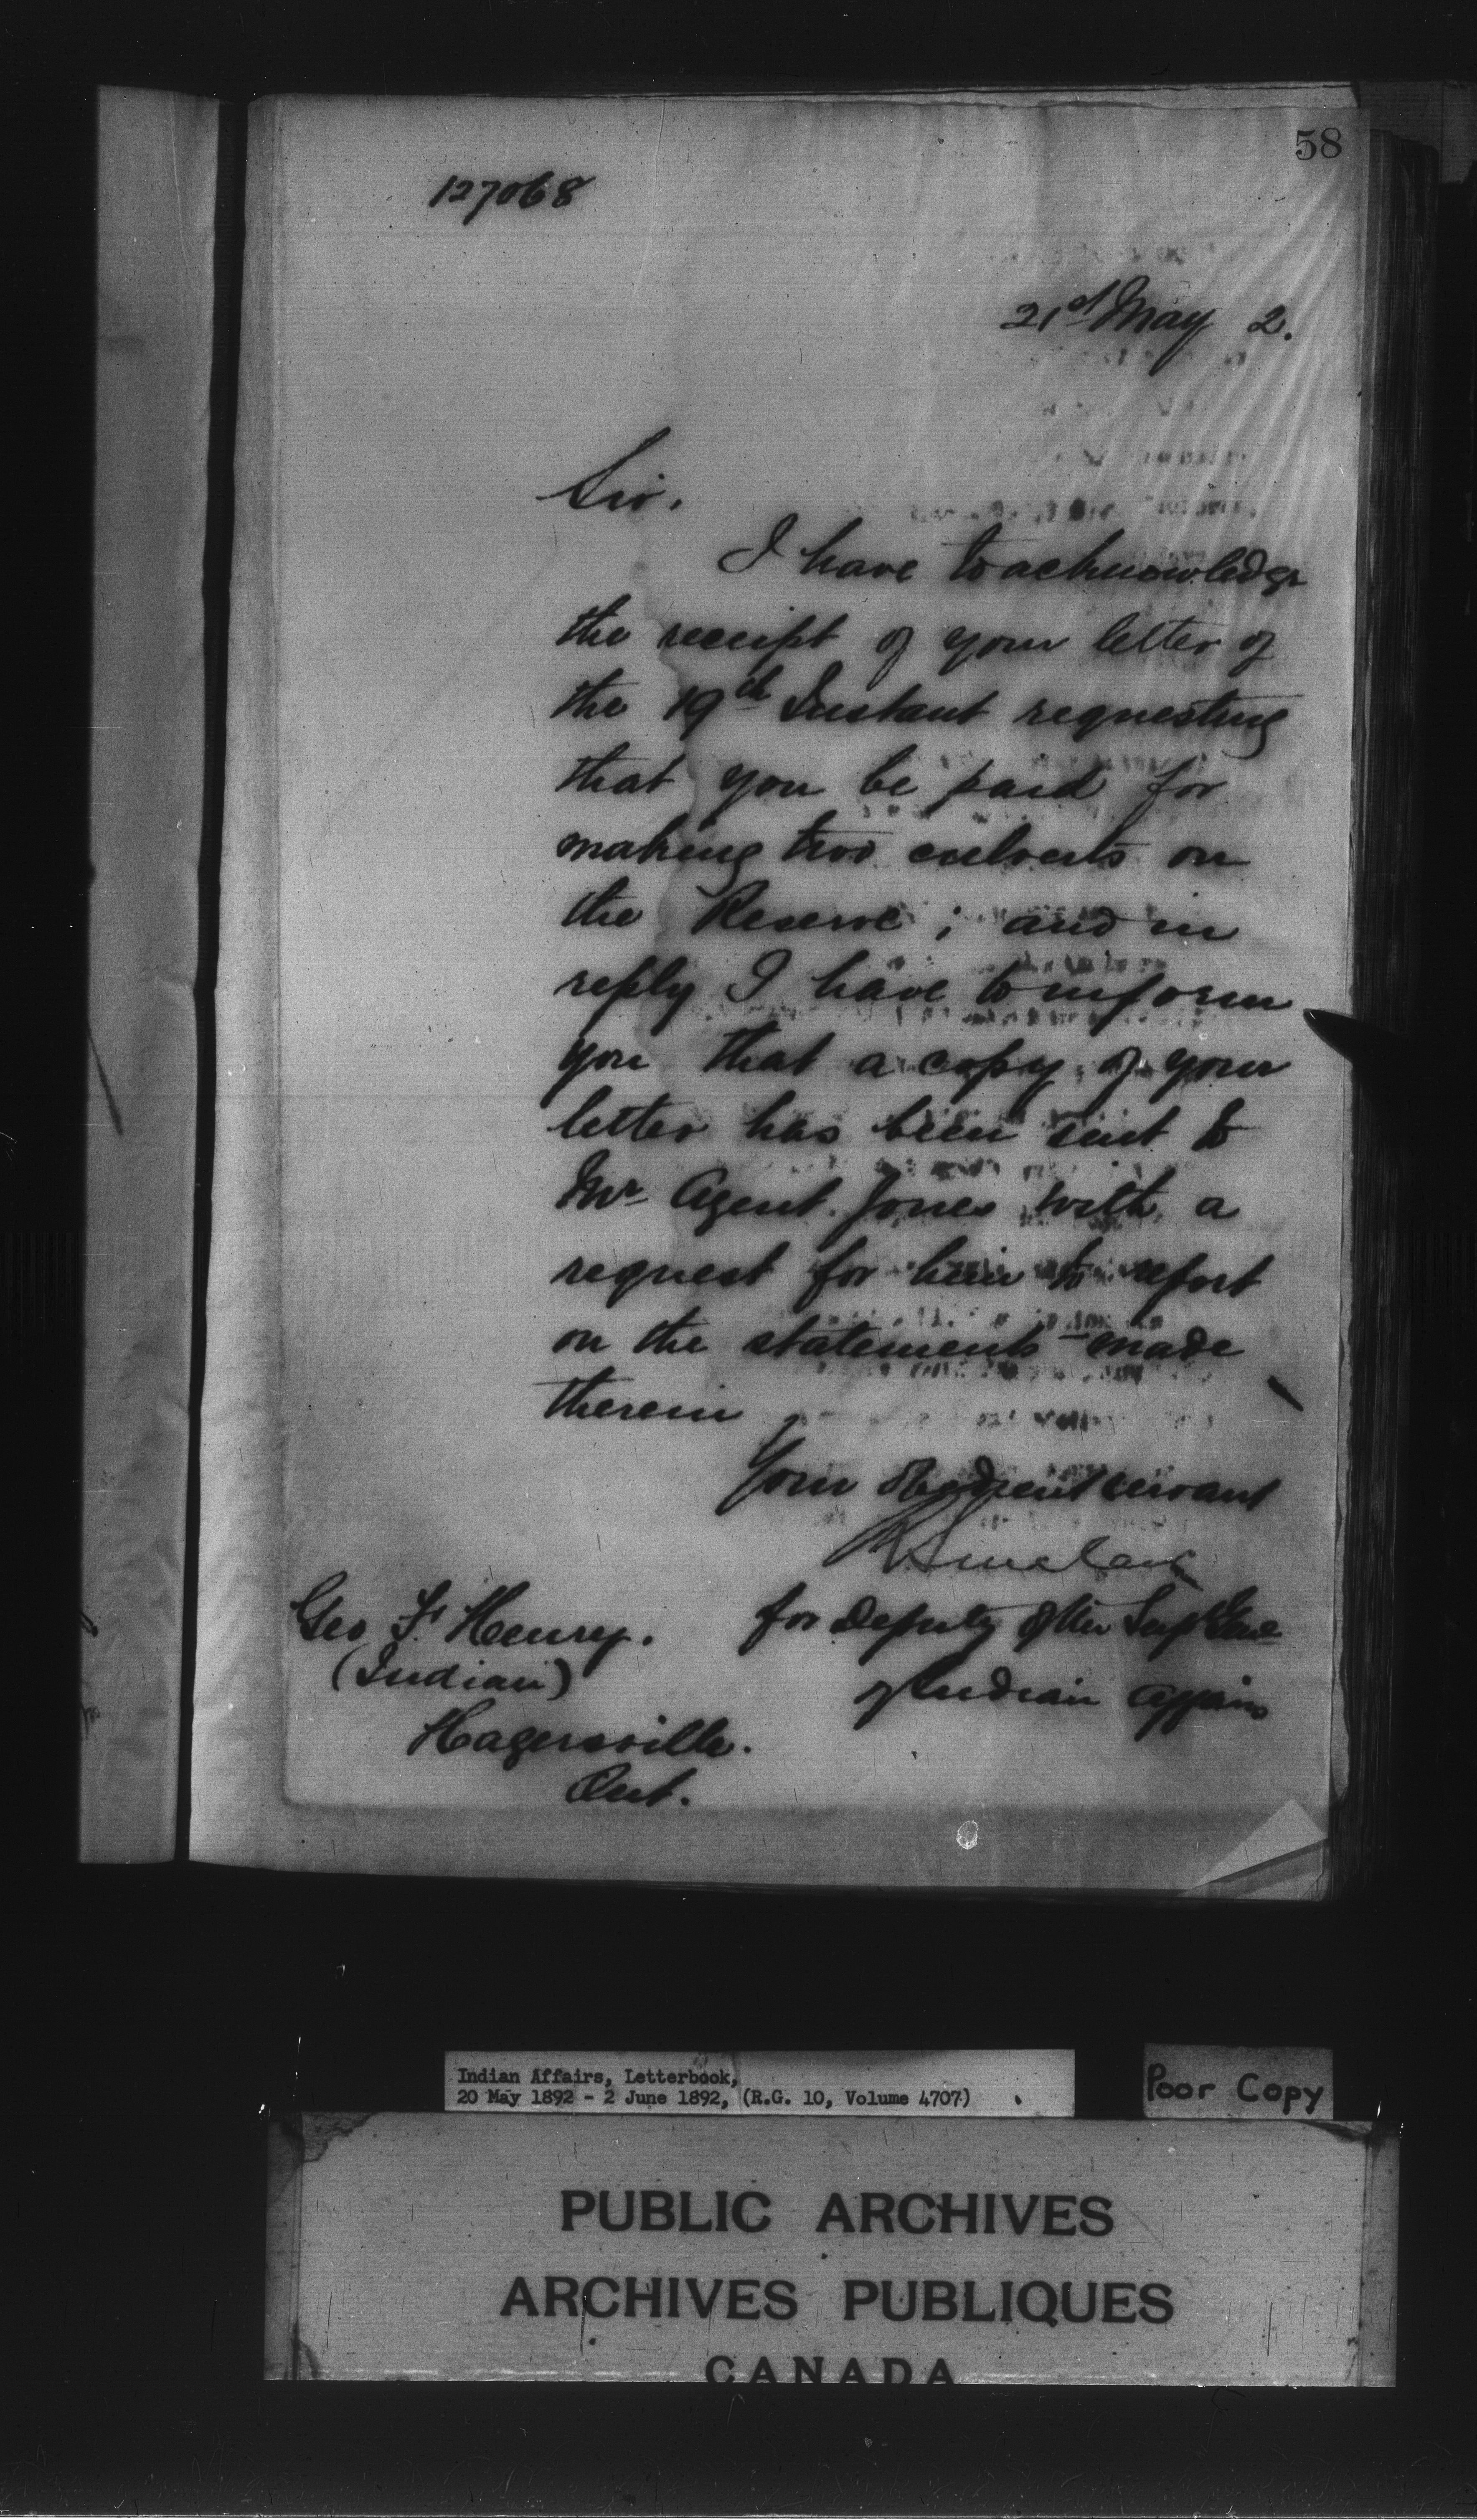 58
127068
21st May 2.
Sir,
I have to acknowledge
the receipt of your letter of
the 19th Instant requesting
that you be paid for
making two culverts on
the Reserve; and in
reply I have to inform
you that a copy of your
letter has been sent to
Mr Agent Jones with a
request for him to report
on the statements made
therein
Your obedient servant
R Sinclair
for Deputy of the Supt Genl
of Indian Affairs
Geo F Henry.
(Indian)
Hagersville.
Ont.
Indian Affairs, Letterbook,
20 May 1892 - 2 June 1892, (R.G. 10, Volume 4707)
Poor Copy
PUBLIC ARCHIVES
ARCHIVES PUBLIQUES
CANADA